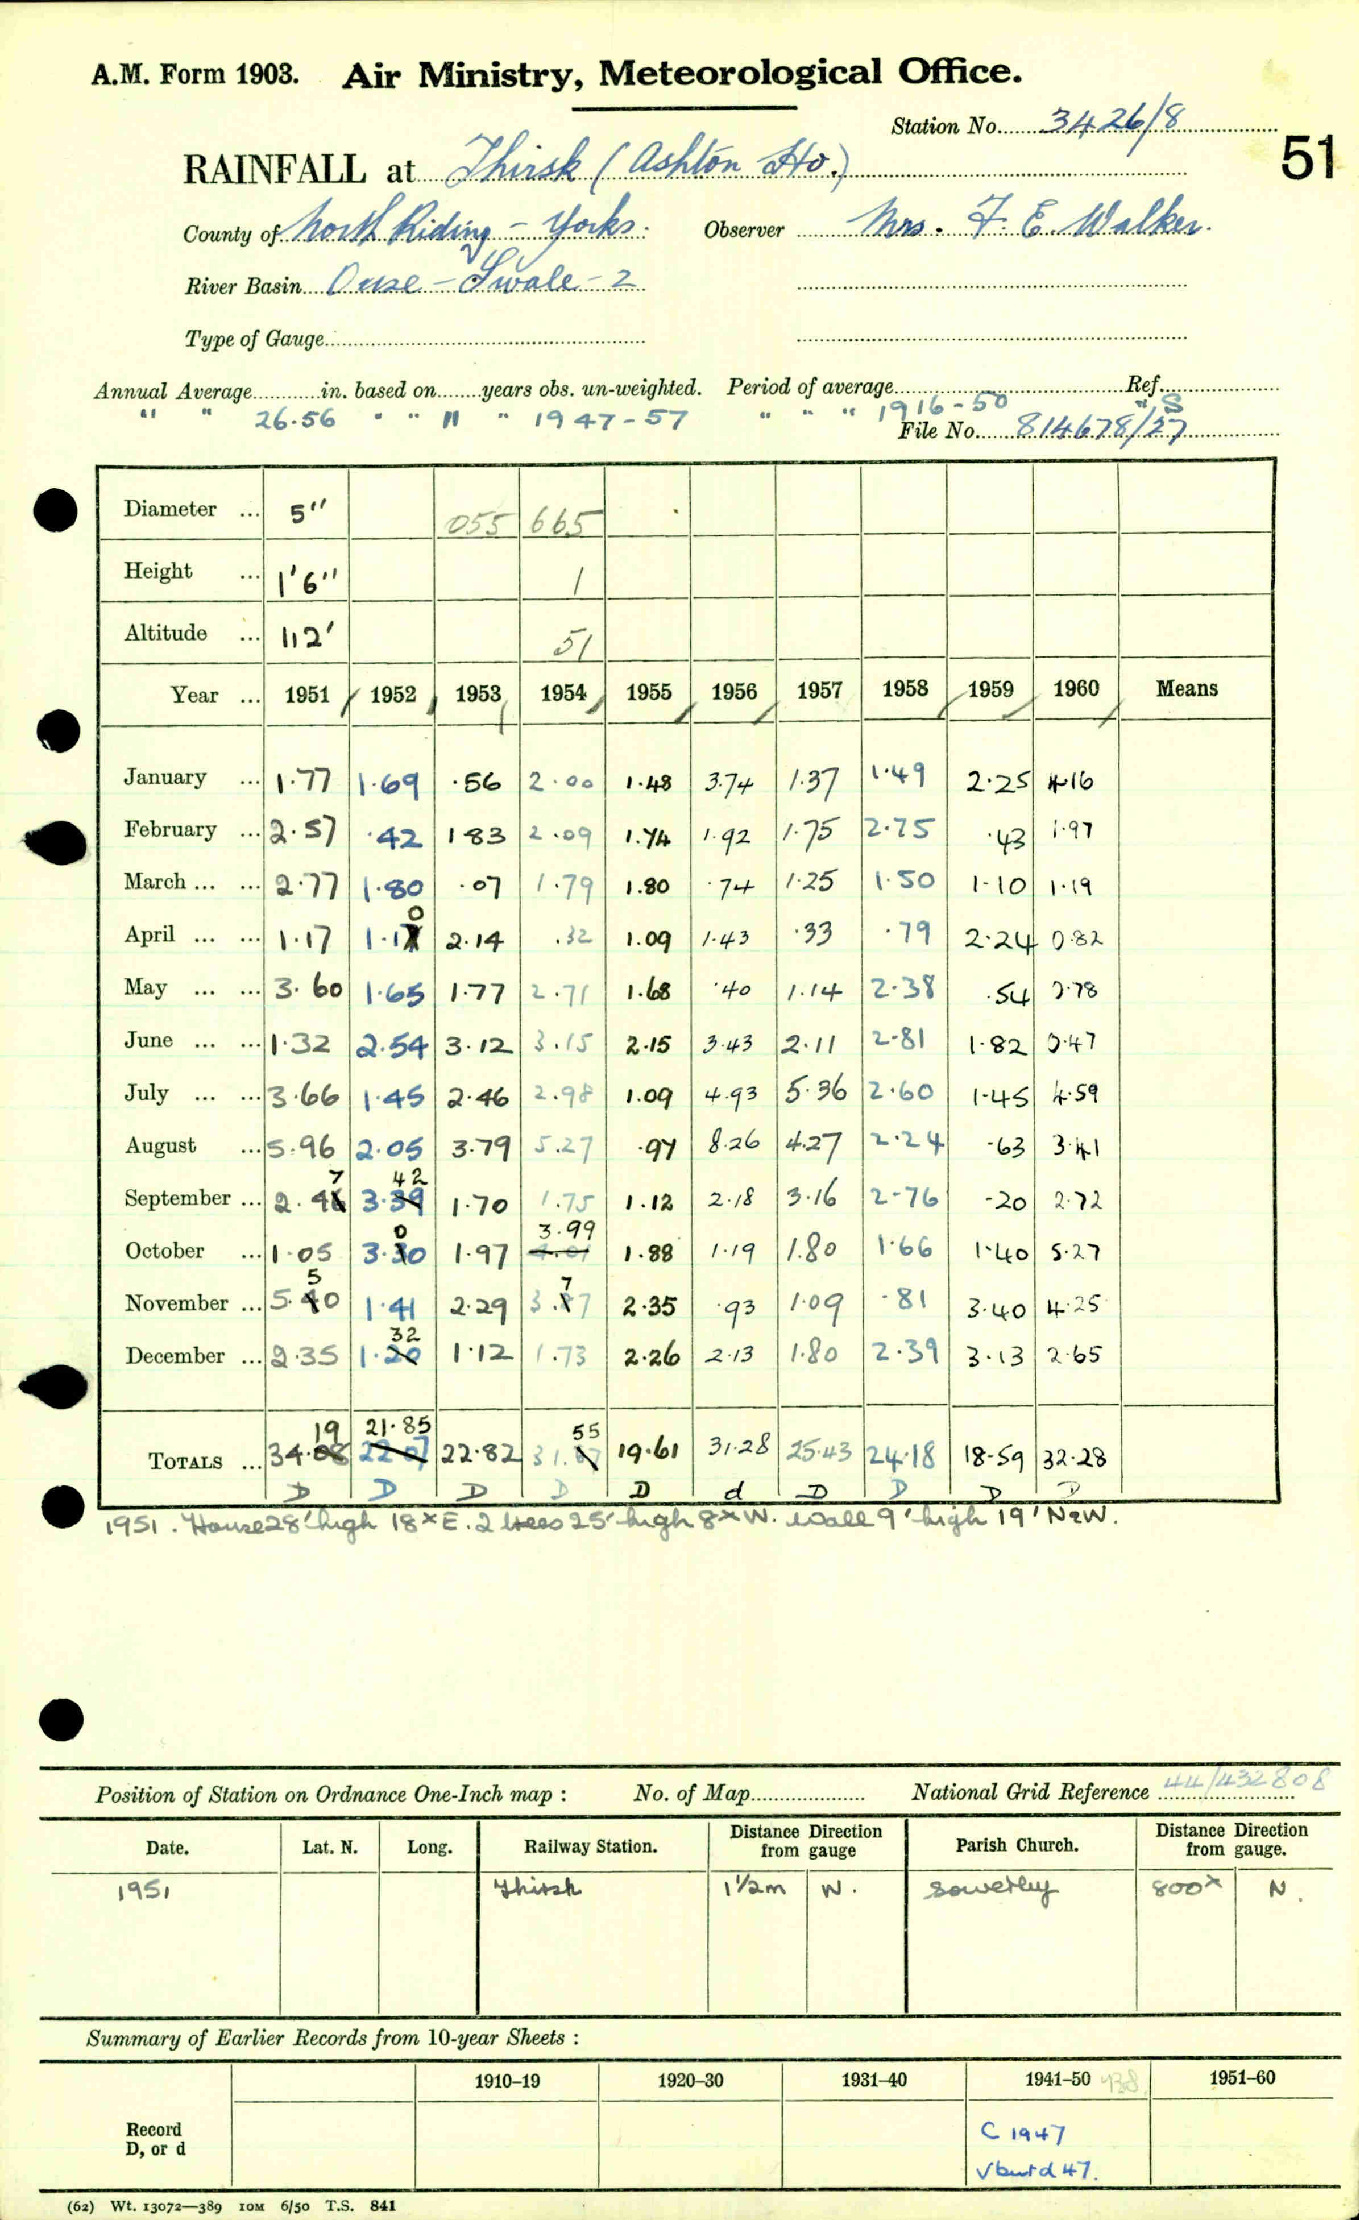 A.M. Form 1903. Air Ministry, Meteorological Office.
Station No. 3426/8
51
RAINFALL at Thirsk (Ashton Ho.)
County of North Riding - Yorks. Observer Mrs. F. E. Walker.
River Basin Ouse - Swale - 2
Type of Gauge
Annual Average in. based on years obs. un-weighted. Period of average Ref.
" " 26.56 " " 11 " 1947-57 " " " 1916-50 "/S
File No. 814678/27
Diameter ... 5" 055 665
Height ... 1'6" 1
Altitude ... 112' 51
Year ... 1951 1952 1953 1954 1955 1956 1957 1958 1959 1960 Means
January ... 1.77 1.69 .56 2.00 1.48 3.74 1.37 1.49 2.25 4.16
February ... 2.57 .42 1.83 2.09 1.74 1.92 1.75 2.75 .43 1.97
March ... ... 2.77 1.80 .07 1.79 1.80 .74 1.25 1.50 1.10 1.19
0
April ... ... 1.17 1.17 2.14 .32 1.09 1.43 .33 .79 2.24 0.82
May ... ... 3.60 1.65 1.77 2.71 1.68 .40 1.14 2.38 .54 0.78
June ... ... 1.32 2.54 3.12 3.15 2.15 3.43 2.11 2.81 1.82 0.47
July ... ... 3.66 1.45 2.46 2.98 1.09 4.93 5.36 2.60 1.45 4.59
August ... 5.96 2.05 3.79 5.27 .97 8.26 4.27 2.24 .63 3.41
7 42
September ... 2.46 3.39 1.70 1.75 1.12 2.18 3.16 2.76 .20 2.72
0 3.99
October ... 1.05 3.30 1.97 4.01 1.88 1.19 1.80 1.66 1.40 5.27
5 7
November ... 5.40 1.41 2.29 3.87 2.35 .93 1.09 .81 3.40 4.25
32
December ... 2.35 1.20 1.12 1.73 2.26 2.13 1.80 2.39 3.13 2.65
19 21.85 55
TOTALS ... 34.08 22.07 22.82 31.67 19.61 31.28 25.43 24.18 18.59 32.28
D D D D D d D D D D
1951. House 28' high 18x E. 2 trees 25' high 8x W. Wall 9' high 19' N&W.
Position of Station on Ordnance One-Inch map : No. of Map National Grid Reference 44/432808
Date. Lat. N. Long. Railway Station. Distance Direction from gauge Parish Church. Distance Direction from gauge.
1951 Thirsk 1½m W. Sowerby 800x N.
Summary of Earlier Records from 10-year Sheets :
1910–19 1920–30 1931–40 1941–50 1951–60
Record
D, or d
C 1947
v but d 47.
(62) Wt. 13072—389 10M 6/50 T.S. 841